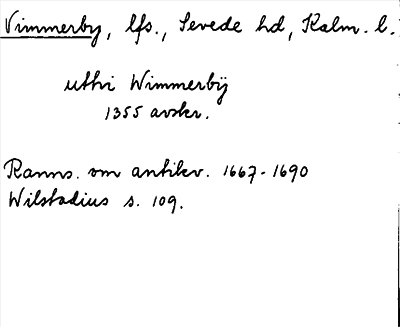 Vimmerby, lfs., Sevede hd, Kalm. l.
uthi Wimmerbÿ
1355 avskr.
Ranns. om antikv. 1667-1690
Wilstadius s. 109.